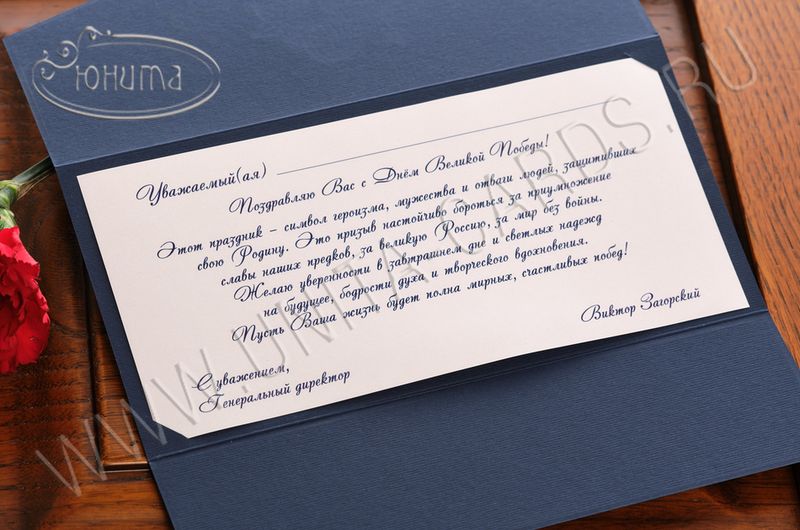 Юнита
Уважаемый(ая)
Поздравляю Вас с Днём Великой Победы!
Этот праздник – символ героизма, мужества и отваги людей, защитивших
свою Родину. Это призыв настойчиво бороться за приумножение
славы наших предков, за великую Россию, за мир без войны.
Желаю уверенности в завтрашнем дне и светлых надежд
на будущее, бодрости духа и творческого вдохновения.
Пусть Ваша жизнь будет полна мирных, счастливых побед!
С уважением,
Генеральный директор
Виктор Загорский
WWW.UNITA-CARDS.RU